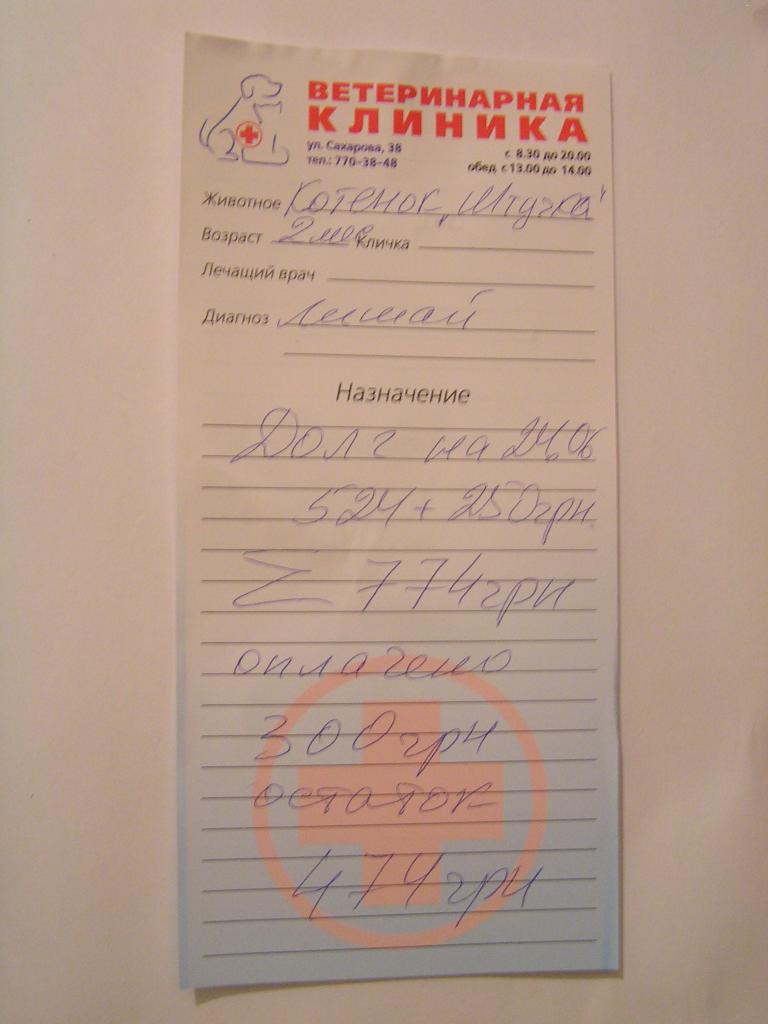 ВЕТЕРИНАРНАЯ
КЛИНИКА
ул. Сахарова, 38
тел.: 770-38-48
с 8.30 до 20.00
обед с 13.00 до 14.00
Животное Котенок „Штучка"
Возраст 2 мес Кличка
Лечащий врач
Диагноз Лишай
Назначение
Долг на 24.06
524 + 250грн
Σ 774грн
оплачено
300грн
остаток
474грн